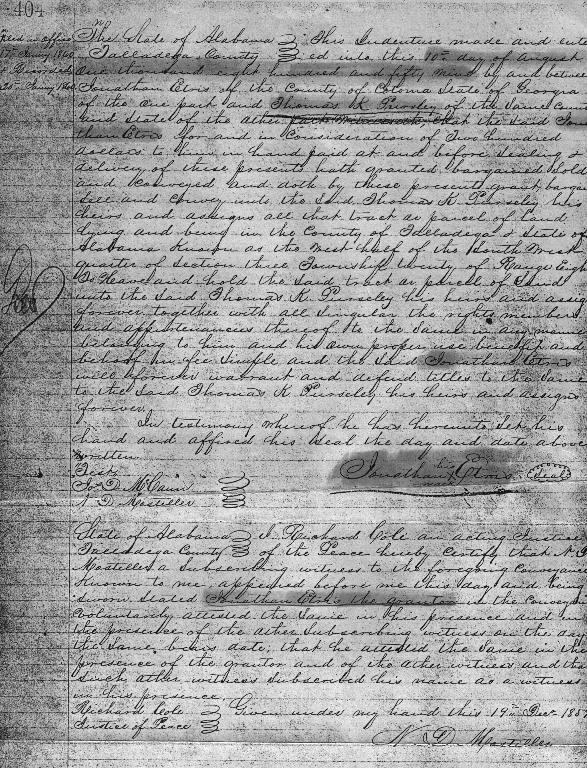 404
The State of Alabama This Indenture made and ente
Filed in office
Talladega County ed into this 10th day of August
& Recorded
One thousand eight hundred and fifty nine by and betwe
Jonathan Etris of the County of State of Georgia
of the One part and Thomas K Pursley of the Same Coun
and State of the other part that the Said Jona
than Etris for and in Consideration of Two hundred
dollars to him in hand paid at and before Sealing &
delivery of these presents hath granted bargained Sold
and Conveyed and doth by these presents grant barga
Sell and Convey unto the Said Thomas K. Purseley his
heirs and assigns all that tract or parcel of Land
lying and being in the County of Talladega & State of
Alabama Known as the West half of the South West
quarter of Section three Township twenty of Range Eig
To have and hold the Said tract or parcel of Land
unto the Said Thomas K. Purseley his heirs and assi
forever together with all Singular the rights members
and appurtenances thereof to the Same in any man
belonging to him and his own proper use benefit and
behoof in fee Simple and the Said Jonathan Etris
will forever warrant and defend titles to the Same
to the Said Thomas K Purseley his heirs and assigns
forever.
In testimony whereof he has hereunto Set his
hand and affixed his Seal the day and date above
written
Test
his
Jonathan Etris Seal
J. D. McCann
N D Mosteller
State of Alabama I Richard Cole an acting Justice
Talladega County of the Peace hereby Certify that N. D
Mosteller a Subscribing witness to the foregoing Conveyance
Known to me, appeared before me this day and being
Sworn Stated Jonathan Etris the grantor in the Conveya
Voluntarily attested the Same in his presence and in
the presence of the other Subscribing witness on the day
the Same bears date; that he attested the Same in the
presence of the grantor and of the other witness and tha
Such other witness Subscribed his name as a witness
in his presence
Richard Cole Given under my hand this 19th Decr 185
Justice of Peace
N. D. Mosteller